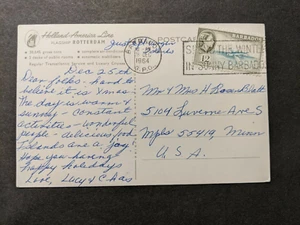 Holland-America Line
FLAGSHIP ROTTERDAM
POSTCARD
Just
Dec 25th
Dear folks - hard to
believe it is Xmas
The day is warm &
sunny - constant
activities - wonderful
people - delicious food
Islands are a joy!
Hope you having
happy holidays
Love, Lucy & Chas
1964
G.P.O.
THE WINTER
IN SUNNY BARBADOS
Mr & Mrs H
5104 Ave S
Mpls 55419, Minn
U.S.A.